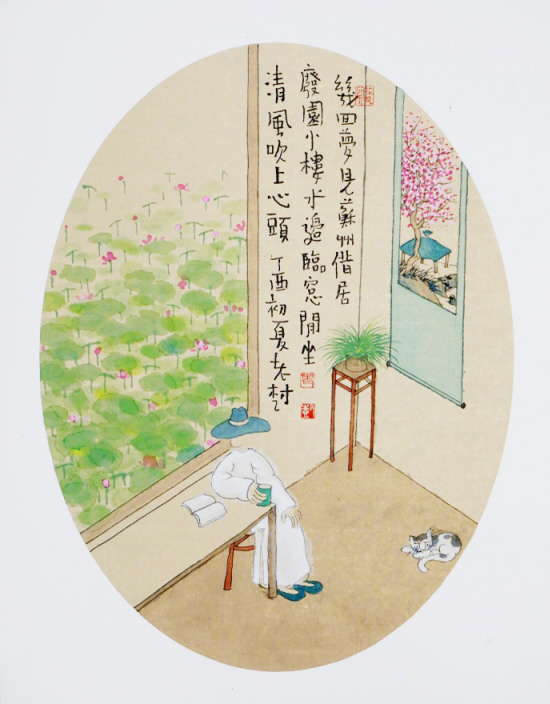 幾回夢見蘇州借居
廢園小樓水邊臨窓閒坐
清風吹上心頭 丁酉初夏老树